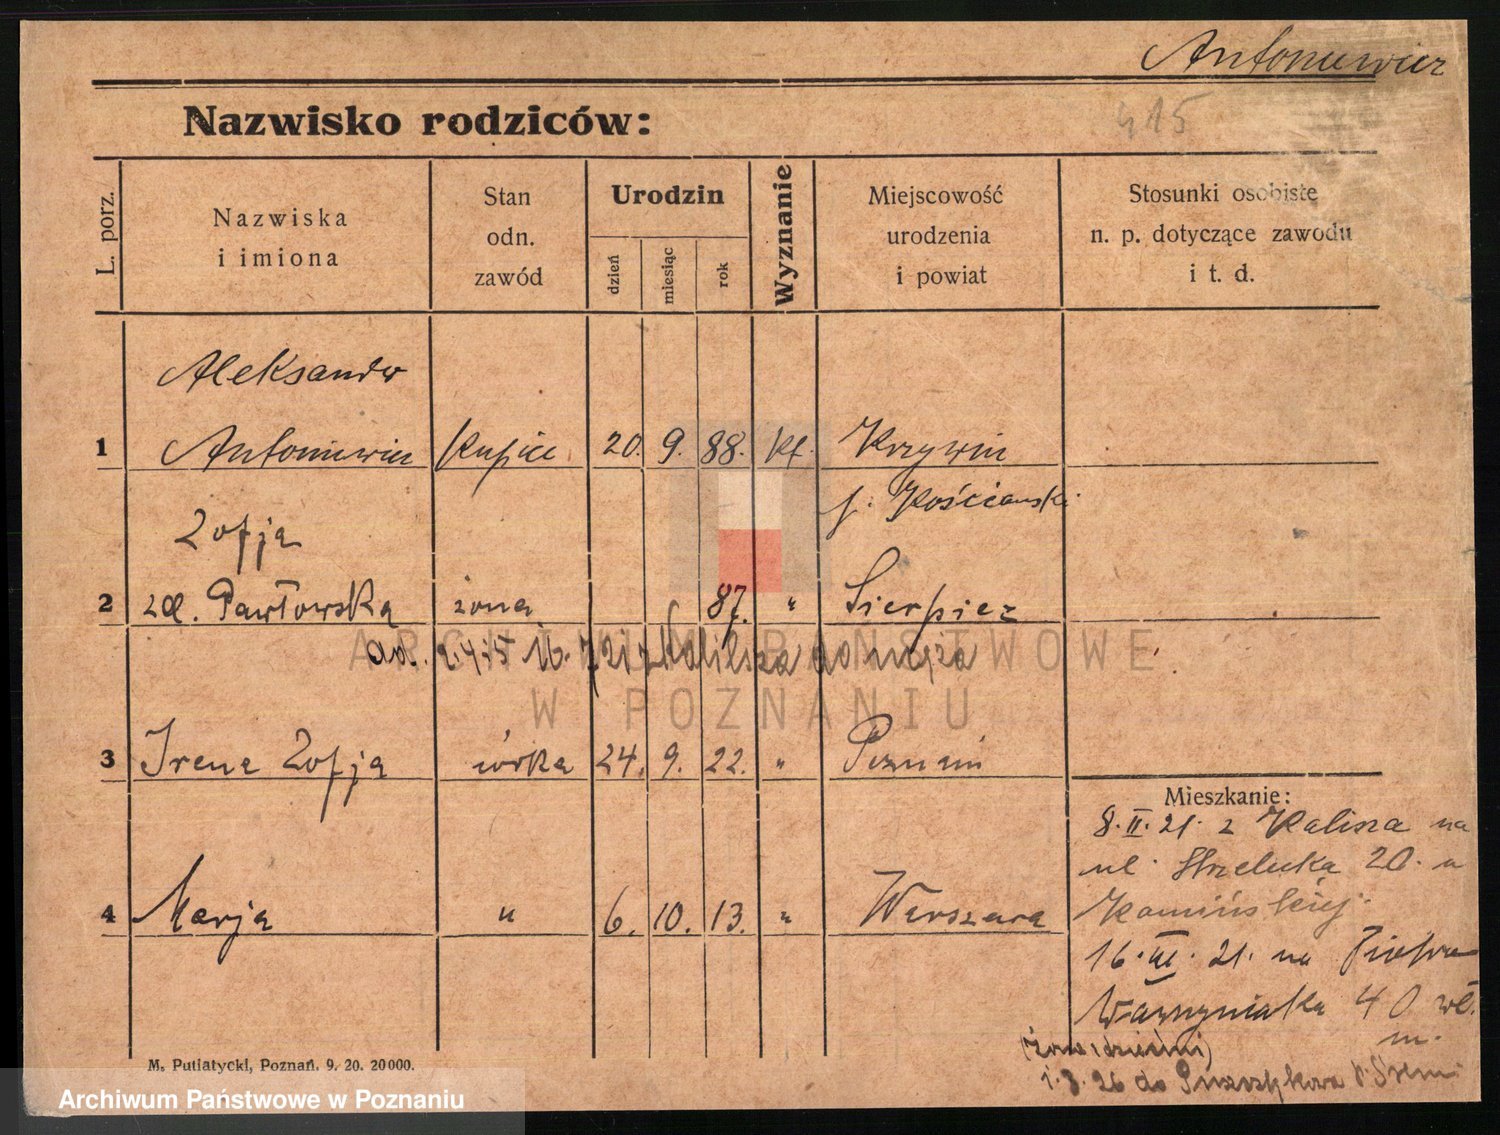 Antoniewicz
415
Nazwisko rodziców:
L. porz.
Nazwiska
i imiona
Stan
odn.
zawód
Urodzin
dzień
miesiąc
rok
Wyznanie
Miejscowość
urodzenia
i powiat
Stosunki osobiste
n. p. dotyczące zawodu
i t. d.
Aleksander
1 Antoniewicz Kupiec 20. 9. 88. kt. Krzywin
p. Kościański
Zofja
2 zd. Pawłowska żona 87. " Sierpiez
2.4.25 do męża
3 Irena Zofja córka 24. 9. 22. " Poznań
4 Marja " 6. 10. 13. " Warszawa
Mieszkanie:
8.II.21. z Kalisza na
ul. Strzelecka 20. u
Kamińskiej.
16.III.21. na Piotra
Wawrzyniaka 40 wł.
m.
(żona i dziećmi)
1.3.26 do
M. Putiatycki, Poznań. 9. 20. 20000.
ARCHIWUM PAŃSTWOWE
W POZNANIU
Archiwum Państwowe w Poznaniu